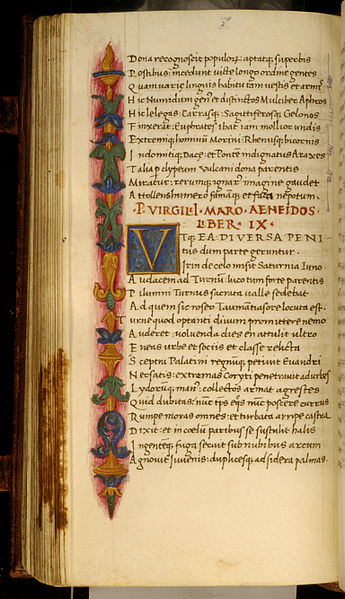 Dona recognoscit populorꝫ: aptatqꝫ superbis
Postibus: incedunt victe longo ordine gentes
Quam varie linguis habitu tam vestis et armis
Hic Numidum genꝰ et distinctos Mulciber Aphros
Hic lelegas: Carrasqꝫ: Sagittiferosqꝫ Gelonos
Finxerat: Euphrates Ibat iam mollior undis
Extremiqꝫ hominū Morini: Rhenusqꝫ bicornis
Indomitiqꝫ Dace: et Pontē indignatus Araxes
Talia p clypeum Vulcani dona parentis
Miratur: rerumqꝫ ignarꝰ imagine gaudet
Attollens humero famāqꝫ et fata nepotum
P. VIRGILI MARO. AENEIDOS
LIBER IX
VTqꝫ EA DIVERSA PENI-
tus dum parte geruntur.
Irin de celo misit Saturnia Iuno
Audacem ad Turnū: luco tum forte parentis
Pilumni Turnus sacrata valle sedebat
Ad quem sic roseo Taumantias ore locuta est.
Turne quod optanti divum promittere nemo
Auderet: volvenda dies en attulit ultro
Eneas urbe et sociis et classe relicta
Sceptra Palatini regnūqꝫ petivit Euandri
Nec satis: extremas Coryti penetravit ad urbes
Lydorūqꝫ manꝰ collectos armat agrestes
Quid dubitas: nūc tps eqs nūc poscere currus
Rumpe moras omnes: et turbata arripe castra
Dixit: et in coelū paribus se sustulit halis
Ingentēqꝫ fuga secuit sub nubibus arcum
Agnovit iuvenis: duplicesqꝫ ad sidera palmas.